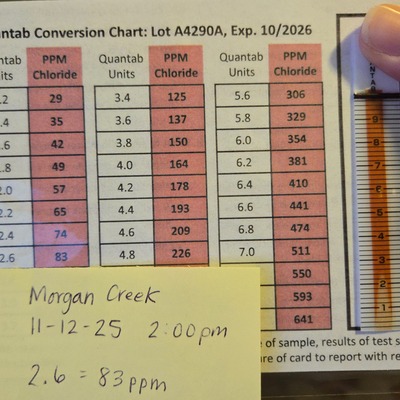 antab Conversion Chart: Lot A4290A, Exp. 10/2026
ntab Units PPM Chloride Quantab Units PPM Chloride Quantab Units PPM Chloride
.2 29 3.4 125 5.6 306
.4 35 3.6 137 5.8 329
.6 42 3.8 150 6.0 354
.8 49 4.0 164 6.2 381
2.0 57 4.2 178 6.4 410
2.2 65 4.4 193 6.6 441
2.4 74 4.6 209 6.8 474
2.6 83 4.8 226 7.0 511
550
593
641
Morgan Creek
11-12-25 2:00pm
2.6 = 83 ppm
of sample, results of test s
re of card to report with re
NTAB
9
8
7
6
5
4
3
2
1